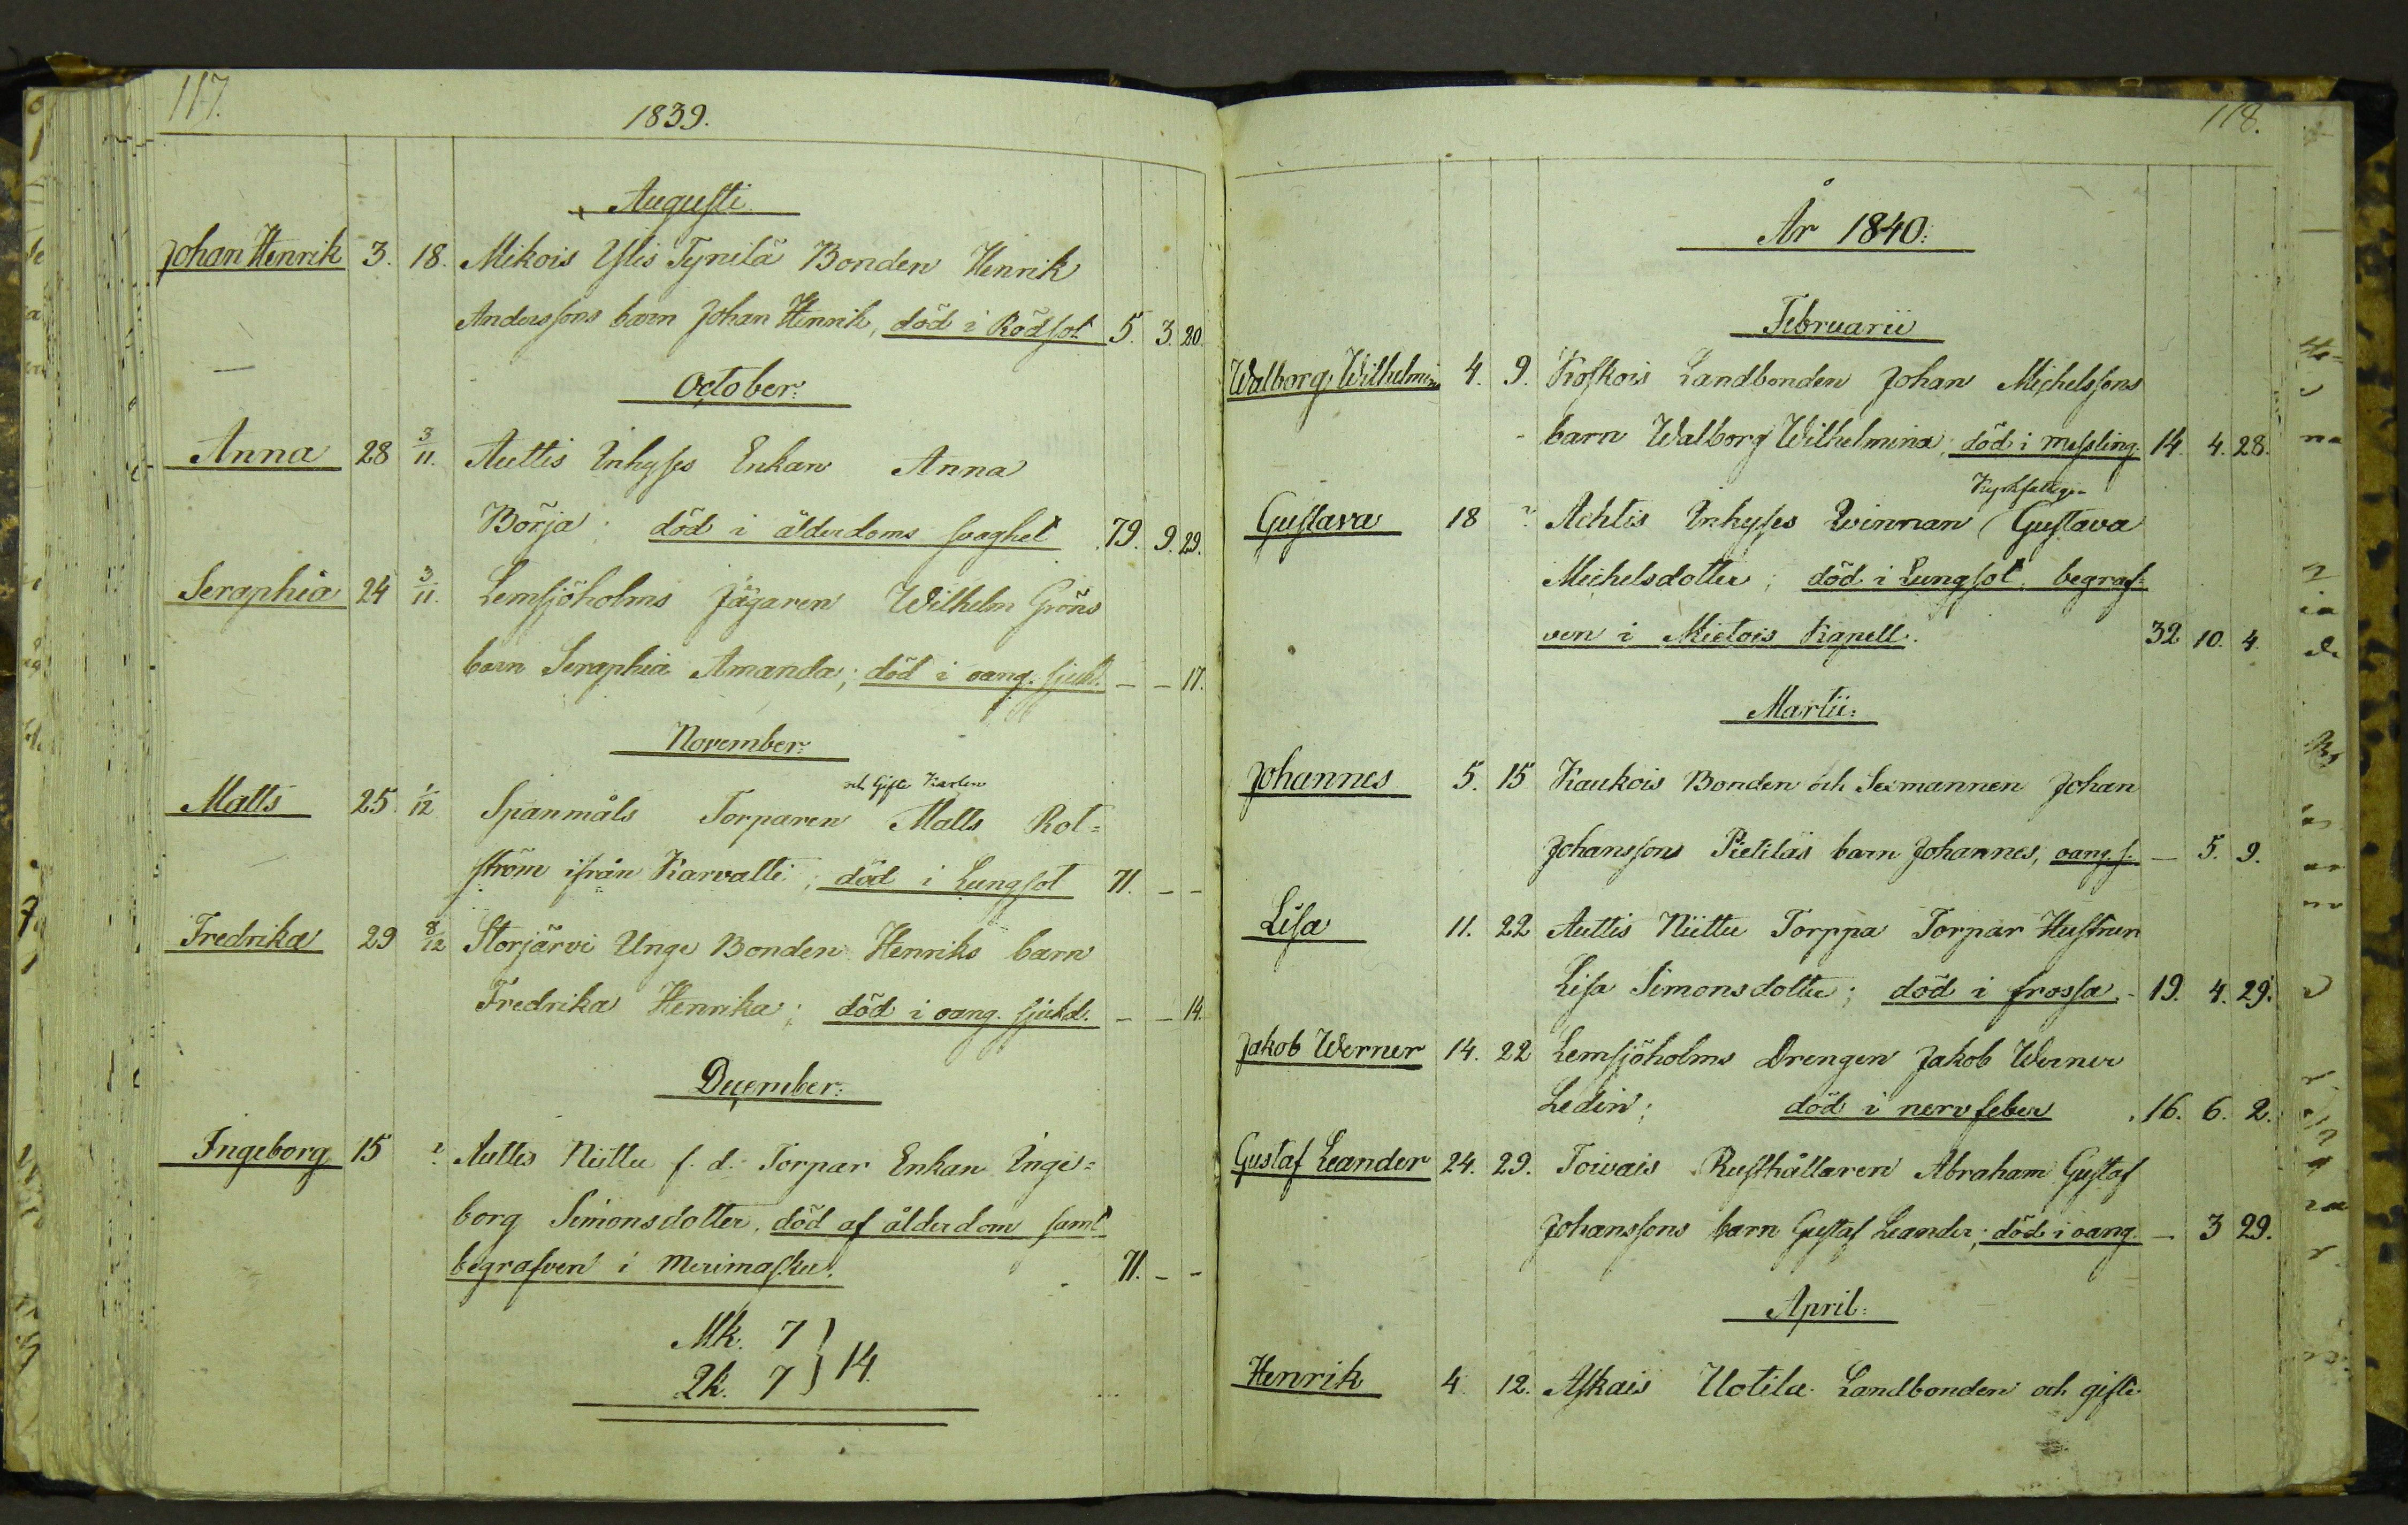 117.
1839.
Augusti
Johan Henrik 3. 18. Mikois Ylis Tynilä Bonden Henrik
Anderssons barn Johan Henrik, död i Rödsot 5. 3. 20.
October:
Anna 28 3/11. Auttis Inhyses Enkan Anna
Börja; död i ålderdoms svaghet 79. 9. 29.
Seraphia 24 3/11. Lemsjöholms Jägaren Wilhelm Gröns
barn Seraphia Amanda; död i oang. sjukd. - - 17.
November:
och Gifte Karlen
Matts 25. 1/12 Spanmåls Torparen Matts Rot=
ström ifrån Karvatti; död i Lungsot 71. - -
Fredrika 29 8/12 Storjärvi Unge Bonden Henriks barn
Fredrika Henrika; död i oang. sjukd. - - 14.
December:
Ingeborg 15 ? Auttis Niittu f. d. Torpar Enkan Inge=
borg Simonsdotter, död af ålderdom samt
begrafven i Merimasku. 71. - -
Mk. 7
Qk. 7 } 14.
118.
År 1840:
Februarii
Walborg Wilhelmina 4. 9. Koskois Landbonden Johan Michelssons
barn Walborg Wilhelmina; död i messling. 14. 4. 28.
Kyrkfattiga
Gustava 18 ? Achtis Inhyses Qvinnan Gustava
Michelsdotter; död i Lungsot, begraf=
ven i Mietois Kapell. 32 10. 4.
Martii:
Johannes 5. 15 Kaukois Bonden och Sexmannen Johan
Johanssons Pietiläs barn Johannes, oang. s. - 5. 9.
Lisa 11. 22 Auttis Niittu Torppa Torpar Hustrun
Lisa Simonsdotter; död i frossa. - 19. 4. 29.
Jakob Werner 14. 22 Lemsjöholms Drengen Jakob Werner
Ledin; död i nervfeber 16. 6. 2.
Gustaf Leander 24. 29. Toivais Rusthållaren Abraham Gustaf
Johanssons barn Gustaf Leander; död i oang. - 3 29.
April:
Henrik 4. 12. Askais Uotila Landbonden och gifte